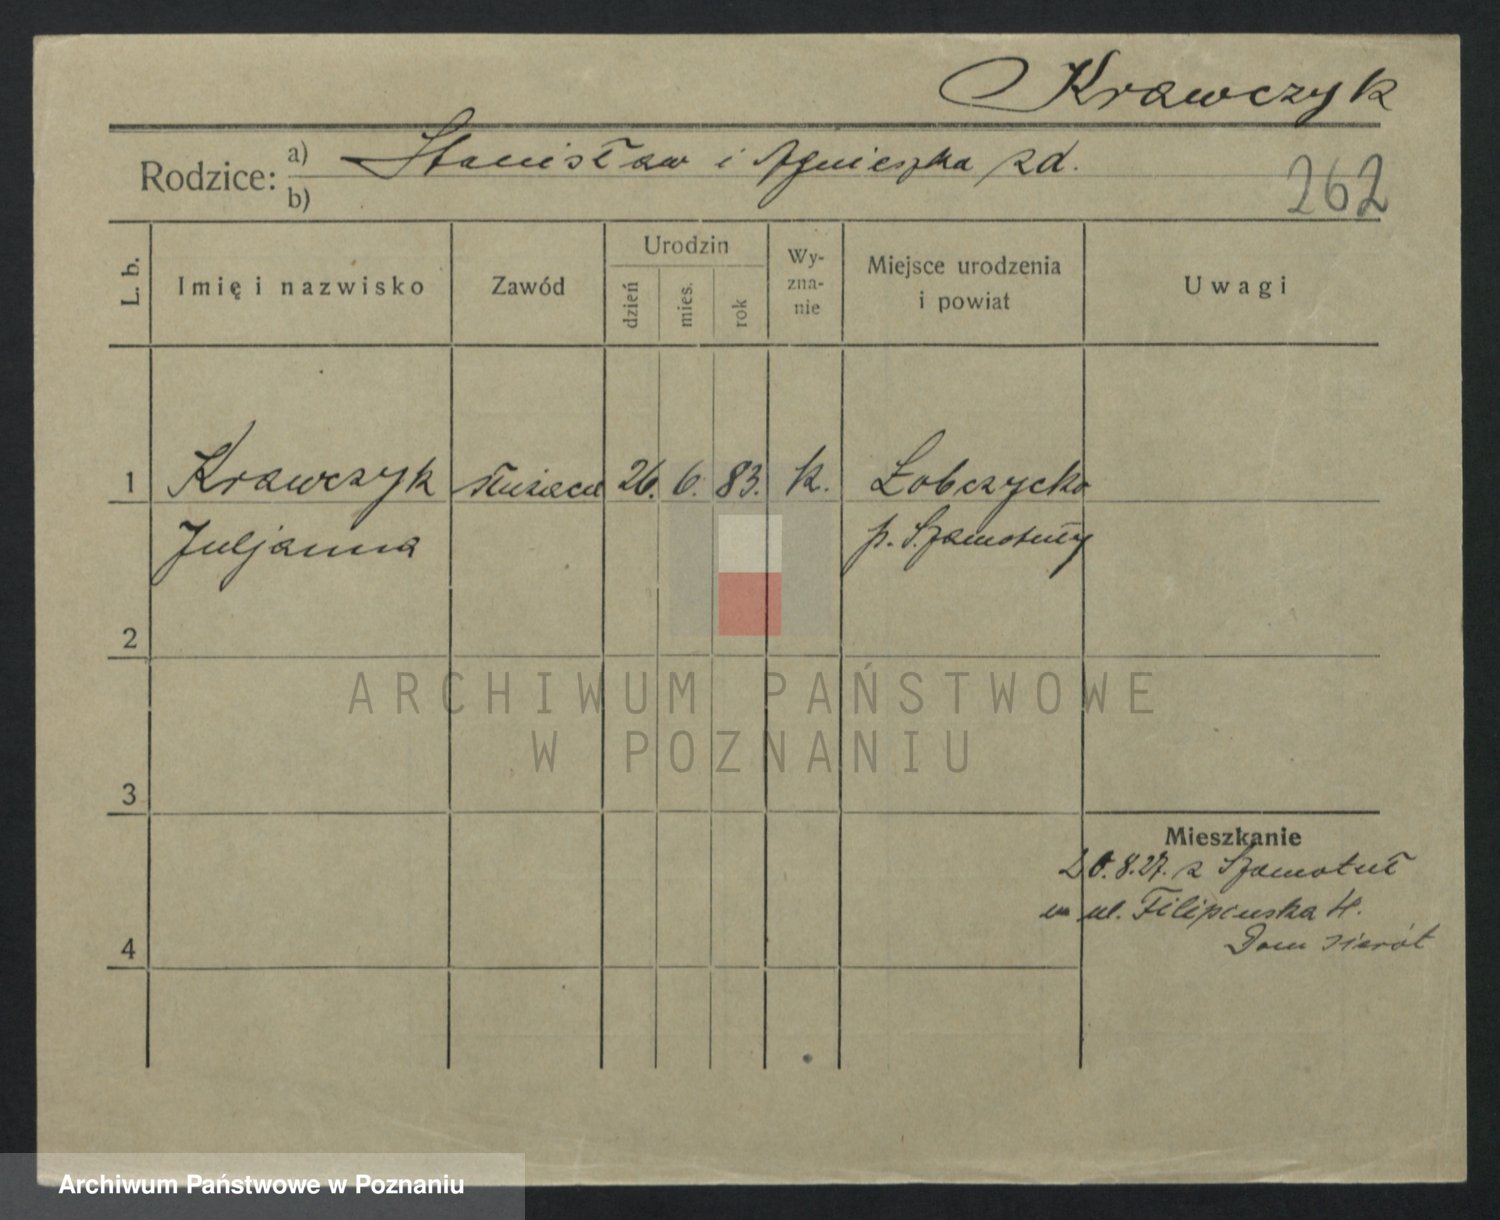 Krawczyk
Rodzice: a) Stanisław i Agnieszka zd.
b)
262
L. b.
Imię i nazwisko
Zawód
Urodzin
dzień
mies.
rok
Wy-
zna-
nie
Miejsce urodzenia
i powiat
Uwagi
1 Krawczyk służąca 26. 6. 83. k. Łobczycko
Juljanna p. Szamotuły
2
ARCHIWUM PAŃSTWOWE
W POZNANIU
3
Mieszkanie
8.27. z Szamotuł
ul. Filipińska 4.
Dom sierót
4
Archiwum Państwowe w Poznaniu